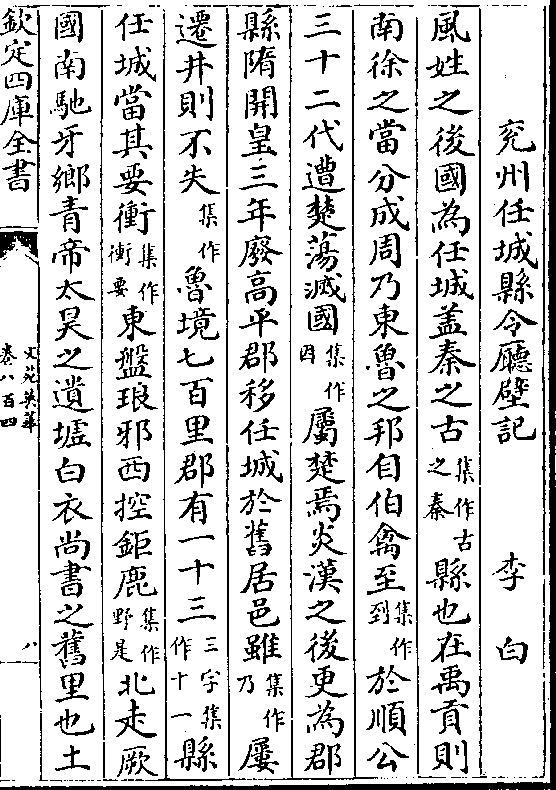 兖州任城縣令廳壁記　李白
風姓之後國為任城盖秦之古集作古之秦縣也在禹貢則
南徐之當分成周乃東魯之邦自伯禽至集作到於順公
三十二代遭楚蕩滅國集作因屬楚焉炎漢之後更為郡
縣隋開皇三年廢高平郡移任城於舊居邑雖集作乃屢
遷井則不失集作魯境七百里郡有一十三三字集作十一縣
任城當其要衝集作衝要東盤琅邪西控鉅鹿集作野是北走厥
國南馳牙鄉青帝太昊之遺墟白衣尚書之舊里也土
欽定四庫全書
文苑英華
卷八百四
八